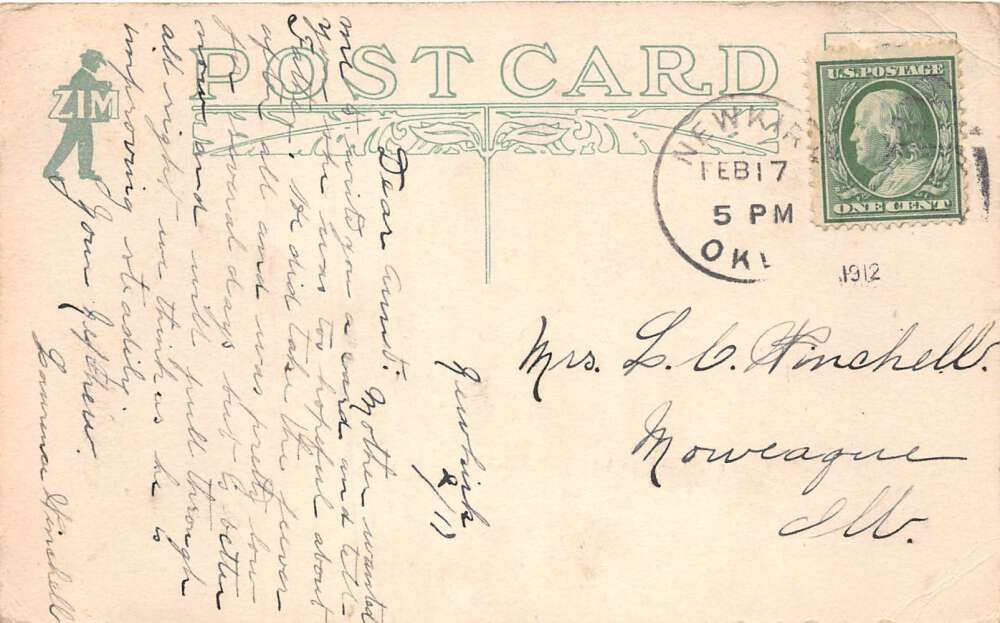 POST CARD
ZIM
U.S. POSTAGE
ONE CENT
NEWKIR
FEB 17
5 PM
OKL
1912
Mrs. L. C. Hinchell.
Moweaque
Ill.
Newkirk
2/17
Dear Aunt: Mother wanted
me to write you a card and tell
you she was too hopeful about
Father. He did take the fever
after all and was pretty low
for several days but is better
now and will pull through
all right we think as he is
improving steadily.
Your Nephew.
Hinchell